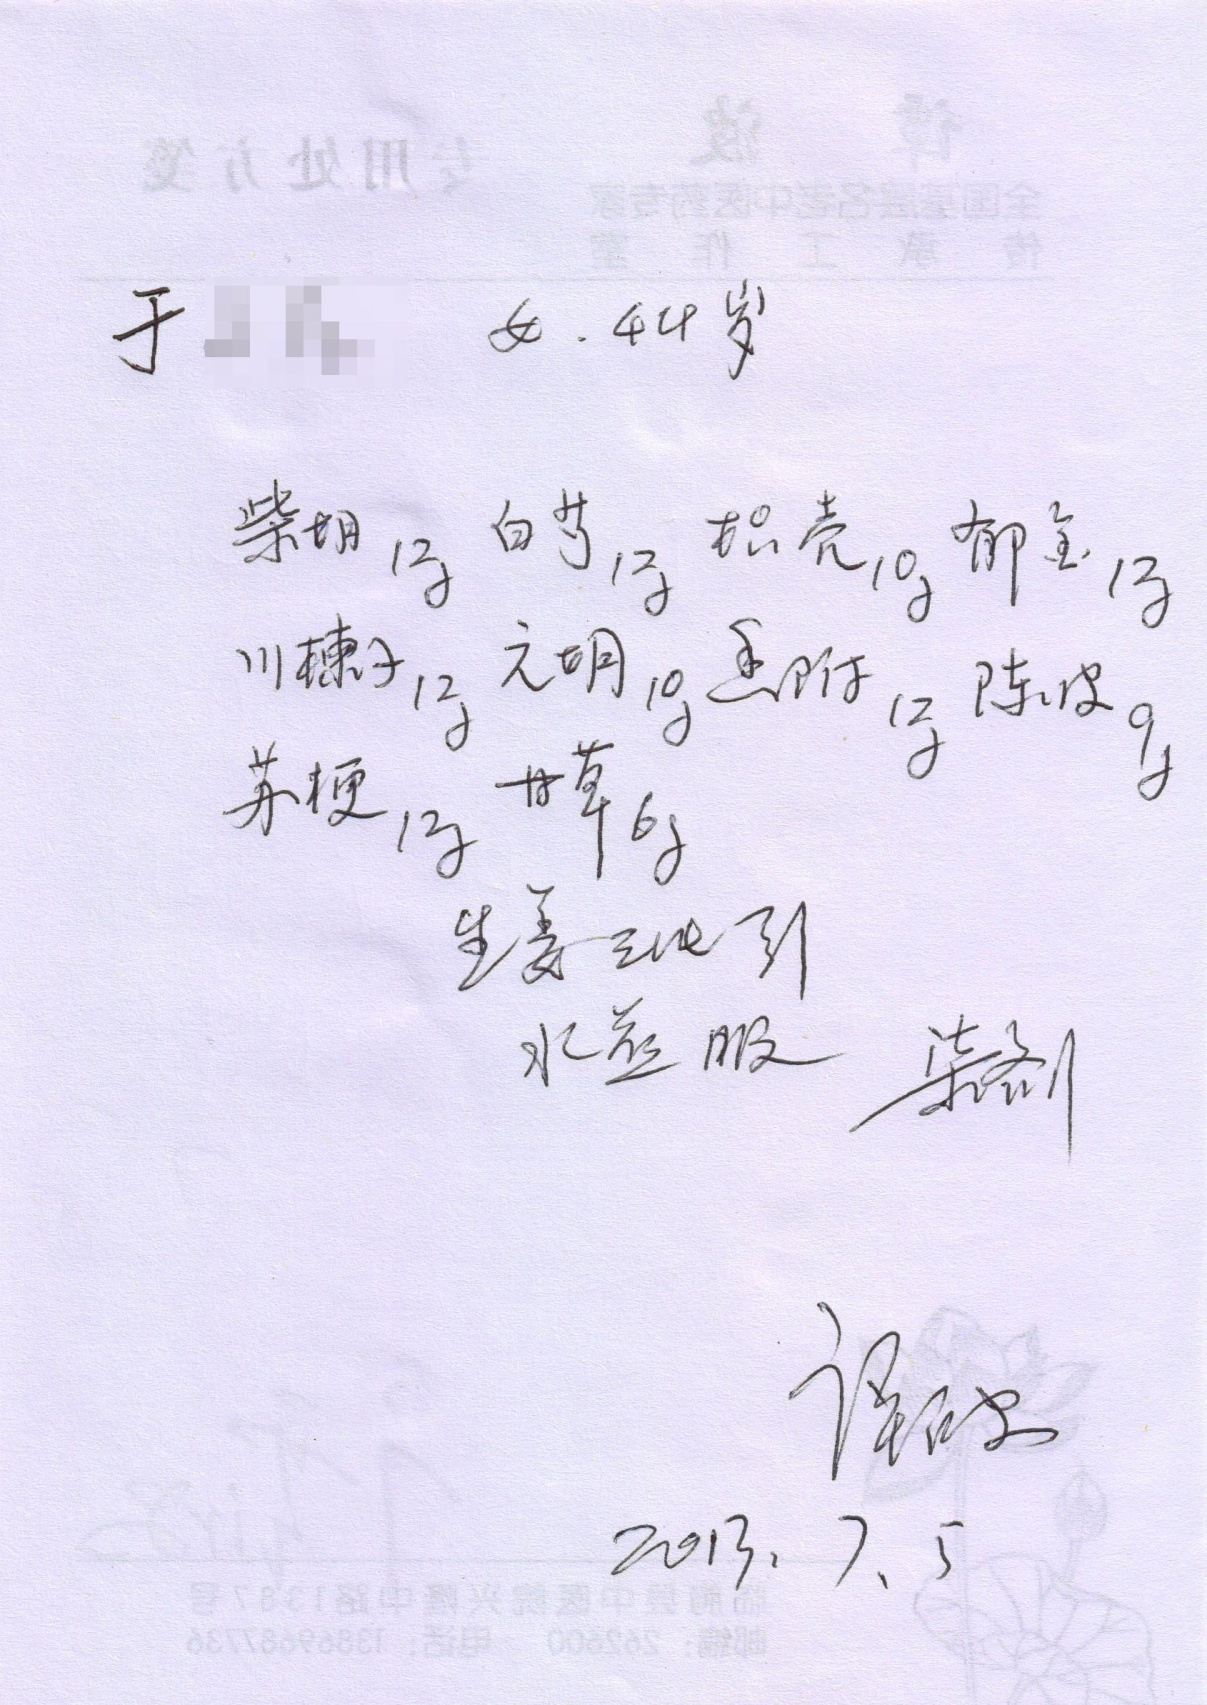 于 女.44岁
柴胡12g 白芍12g 枳壳10g 郁金12g
川楝子12g 元胡10g 香附12g 陈皮9g
苏梗12g 甘草6g
生姜三片引
水煎服 柒剂
谭波
2013.7.5
谭波 专用处方笺
全国基层名老中医药专家
传承工作室
临朐县中医院兴隆中路1387号
邮编:262600 电话:13869687736